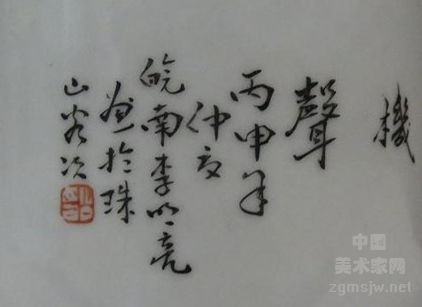 機
聲
丙申年
仲夏
皖南李明亮
畫於珠
山客次
中国
美术家网
zgmsjw.net